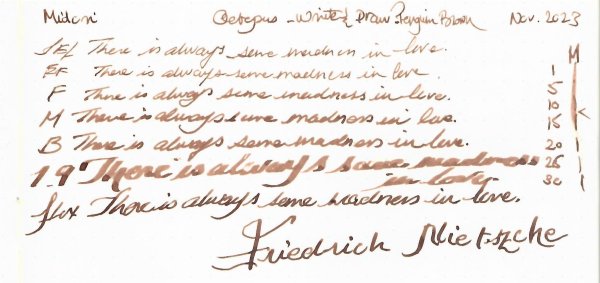 Midori Octopus Write & Draw Penguin Brown Nov. 2023
/EF/ There is always some madness in love.
EF There is always some madness in love.
F There is always some madness in love.
M There is always some madness in love.
B There is always some madness in love.
1.9 There is always some madness
in love
flex There is always some madness in love.
Friedrich Nietszche
M
1
5
10
15
20
25
30